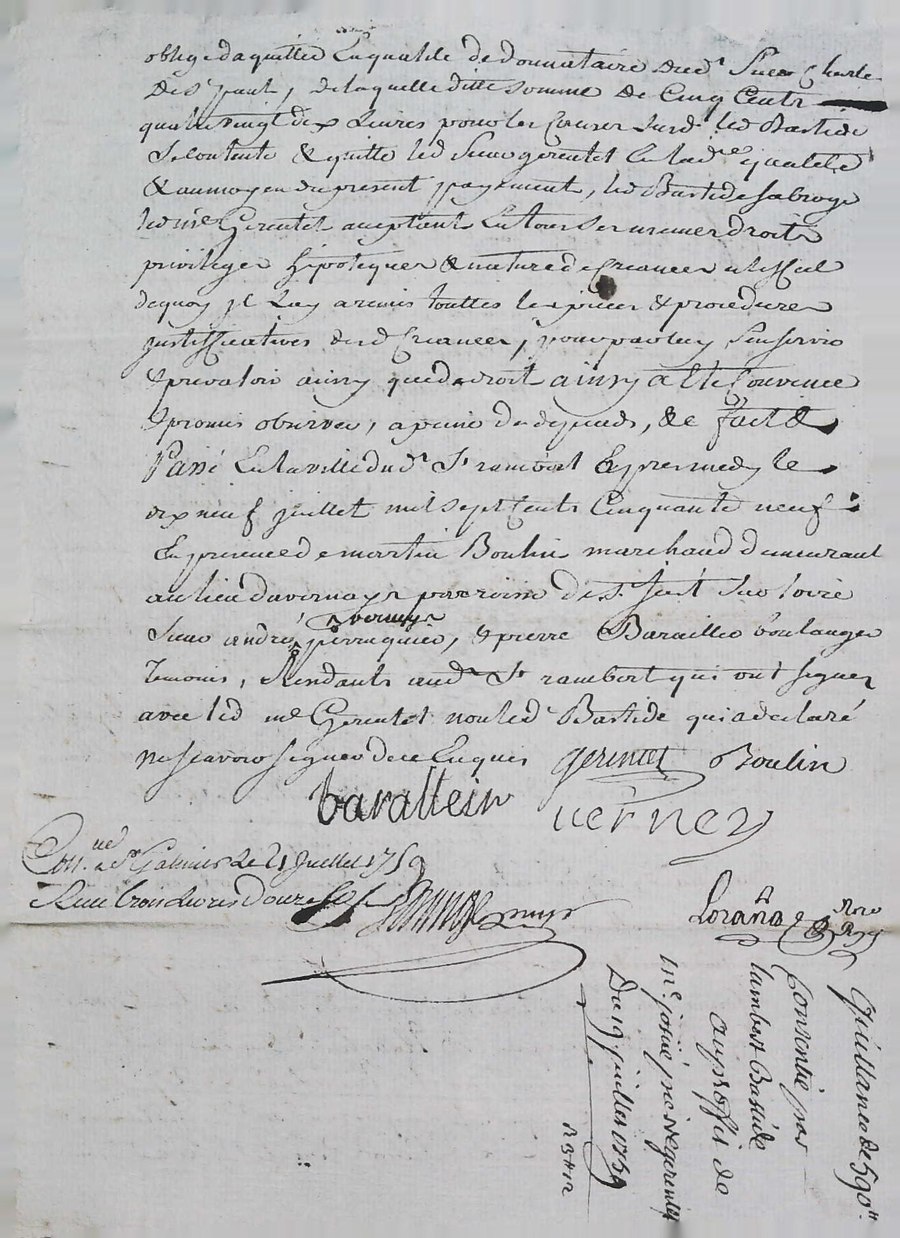 obligé daquitter En qualité de donnataire dud. Sieur Charle
De St paul, de laquelle ditte somme de Cinq Cents
quatre vingt dix Livres pour les Causes susd. led Bastide
Se contente & quitte led Sieur gerentet En lad.e qualité
& au moyen du present payement, led Bastide subroge
led me Gerentet acceptant En tous ses mêmes droits
privileges hipoteques & nature de Creances
dequoy il Luy a remis touttes les pieces & procedures
justifficatives desd Creances, pour par luy s'en servir
& prevaloir ainsy que de droit ainsy a Eté Convenu
& promis observer, a peine de depends, &c fait &
Passé En la ville dud. St rambert Epres medy le
dix neuf juillet mil sept Cents Cinquante neuf
En presence de martin Boulin marchand demeurant
au lieu du vernay parroisse de St Just sur loire
Sieur andré verney perruquier, & pierre Barailler boulanger
temoins, Residants aud. St rambert qui ont signez
avec led me Gerentet non led Bastide qui a declaré
ne scavoir signer de ce Enquis gerentet Boulin
baralleir verney
Con.lle a St Galmier Le 21 Juillet 1759
Reçu trois Livres douze sols
Quittance de 590 ₶
Consentie par
lambert Bastide
au proffit de
me gerentet
Du 19 juillet 1759